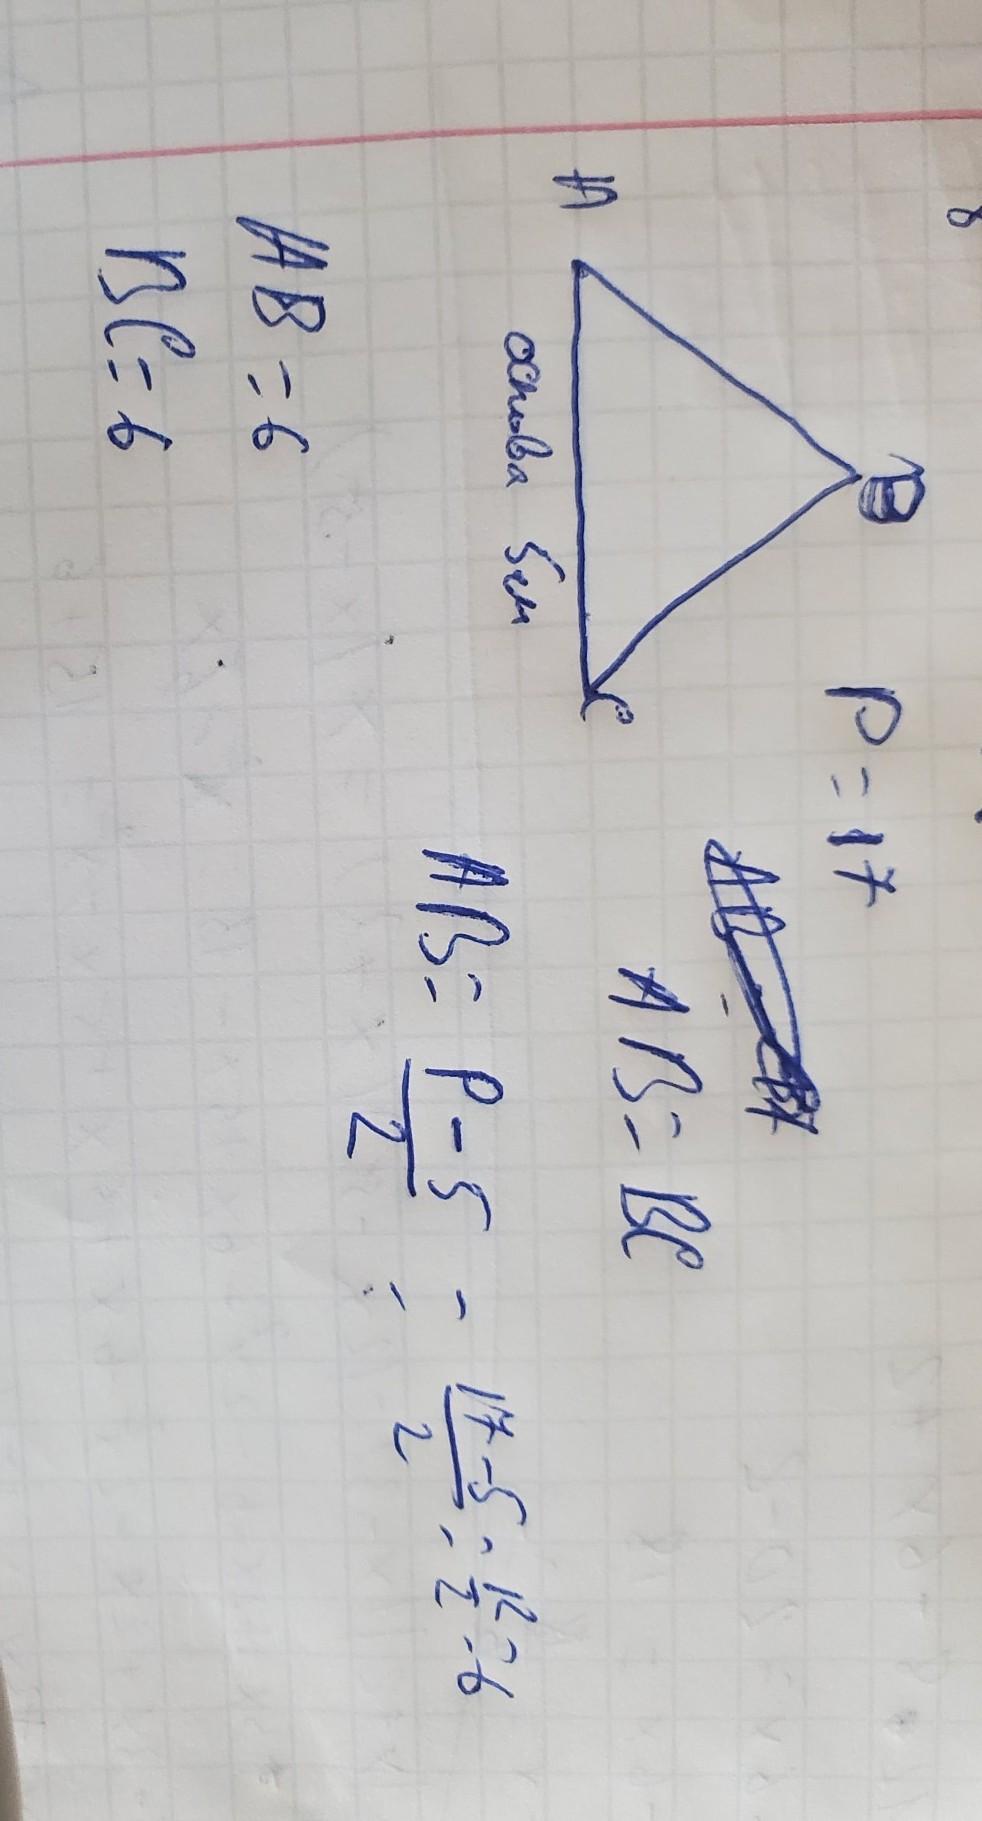 B
P = 17
AB = BC
A
C
основа 5см
AB = P - 5 / 2 = 17 - 5 / 2 = 12 / 2 = 6
AB = 6
BC = 6